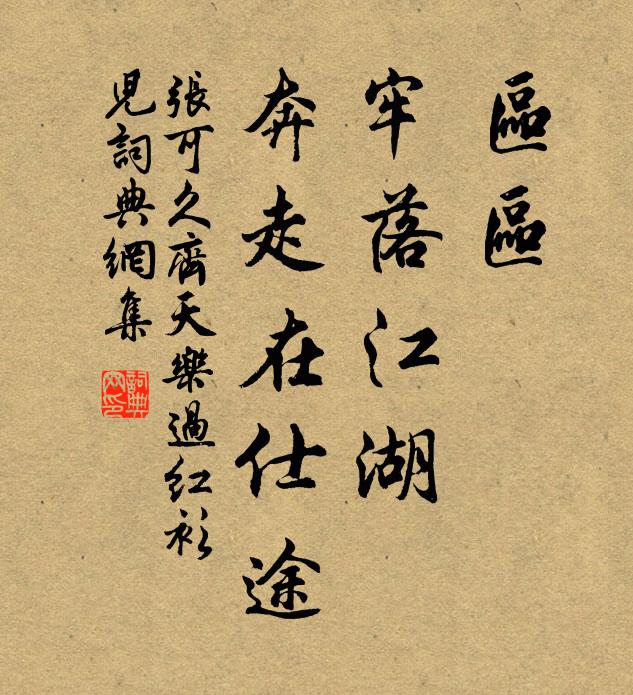 區區
牢落江湖
奔走在仕途
張可久齊天樂過紅衫
兒詞典網集
詞典網印